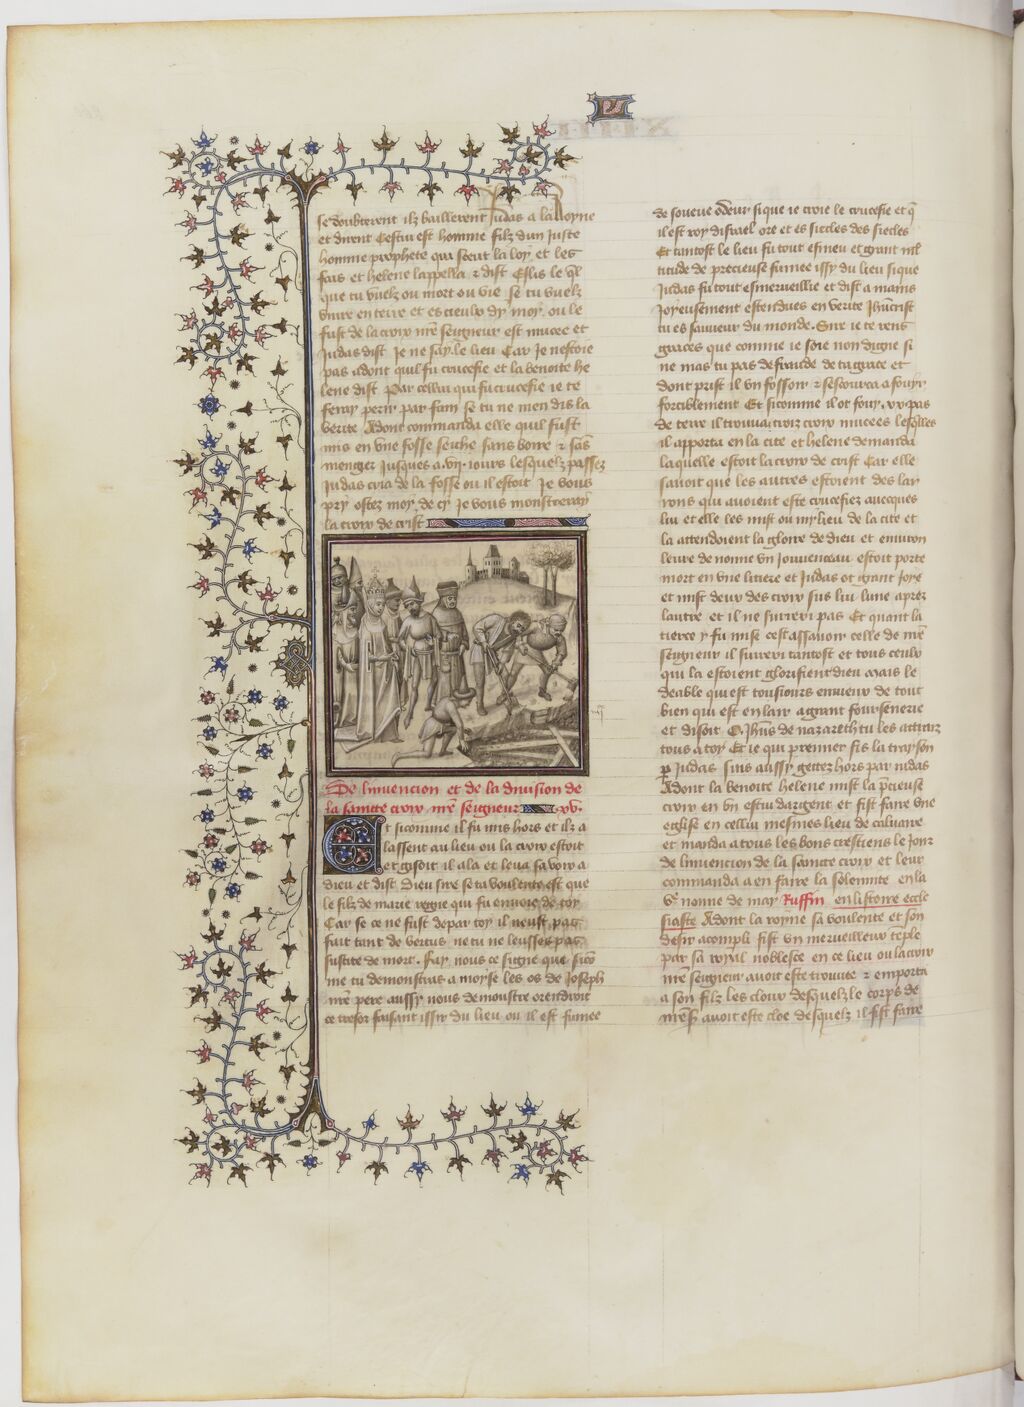 se doubterent ilz baillerent Judas a la Royne
et dirent Cestui est homme filz dun Juste
homme prophete qui sceut la loy et les
fais et helene lappella & dist Eslis le ql
que tu vuelz ou mort ou vie se tu vuelz
vivre en terre et es cieulx dy moy ou le
fust de la croix nre seigneur est mucee et
Judas dist Je ne say le lieu Car Je nestoie
pas adont quil fu crucefie et la benoite he
lene dist Par cellui qui fu crucefie ie te
feray perir par fam se tu ne men dis la
verite Adont commanda elle quil fust
mis en vne fosse seiche sans boire & sans
mengier Jusques a .vij. iours lesquelz passez
Judas cria de la fosse ou il estoit Je vous
pry ostez moy de cy Je vous monstreray
la croix de crist
De linvencion et de la division de
la saincte croix nre seigneur xv.
Et sicomme il fu mis hors et ilz a
lassent au lieu ou la croix estoit
et gisoit il ala et leva sa voix a
dieu et dist Dieu sire se ta voulente est que
le filz de marie regne qui fu envoie de toy
Car se ce ne fust depar toy il neust pas
fait tant de vertus ne tu ne leusses pas
suscite de mort. Fay nous ce signe que sico
me tu demonstras a moyse les os de Joseph
nre pere aussy nous demonstre orendroit
ce tresor faisant issir du lieu ou il est fumee
de soueve odeur si que ie croie le crucefie et q
il est roy disrael ore et es siecles des siecles
Et tantost le lieu fu tout esmeu et grant mul
titude de precieuse fumee issy du lieu sique
Judas fu tout esmerveillie et dist a mains
Joyeusement estendues en verite Jhucrist
tu es sauveur du monde. Sire ie te rens
graces que comme ie soie non digne si
ne mas tu pas defraude de ta grace et
dont prist il vn fossoir & sescourca a fouyr
forciblement Et sicomme il ot fouy .xx. pas
de terre il trouva trois croix mucees lesqlles
il apporta en la cite et helene demanda
laquelle estoit la croix de crist Car elle
savoit que les autres estoient des lar
rons qui avoient este crucefiez avecques
lui et elle les mist ou mylieu de la cite et
la attendoient la gloire de dieu et environ
leure de nonne vn Jouvenceau estoit porte
mort en vne litiere et Judas ot grant Joye
et mist deux des croix sus lui lune aprez
lautre et il ne surrexi pas Et quant la
tierce y fu mise cestassavoir celle de nre
seigneur il surrexi tantost et tous ceulx
qui la estoient glorifient dieu Mais le
deable qui est tousiours envieux de tout
bien qui est en lair a grant foursenerie
et disoit O Jhus de nazareth tu les attraiz
tous a toy Et ie qui premier fis la trayson
p Judas suis aussy gettez hors par iudas
Adont la benoite helene mist la pcieuse
croix en vn escu dargent et fist faire vne
eglise en cellui mesmes lieu de calvaire
et manda a tous les bons crestiens le Jour
de linvencion de la saincte croix et leur
commanda a en faire la solemnite en la
ve nonne de may Ruffin en listoire eccle
siaste Adont la royne sa voulente et son
desir acompli fist vn merveilleux teple
par sa royal noblesce en ce lieu ou la croix
nre seigneur avoit este trouvee & emporta
a son filz les cloux desquelz le corps de
nres avoit este cloe desquelz il fist faire